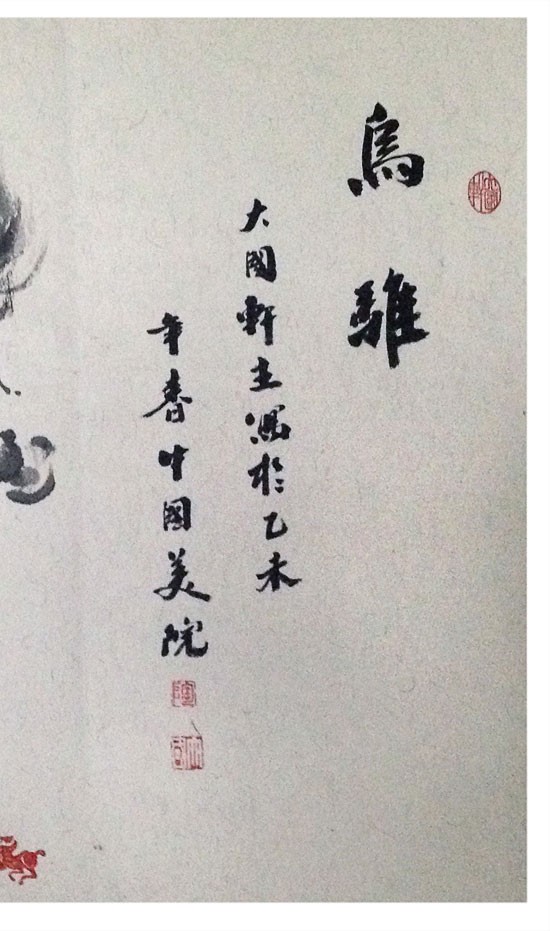 烏騅
大國軒主寫於乙未
年春中國美院